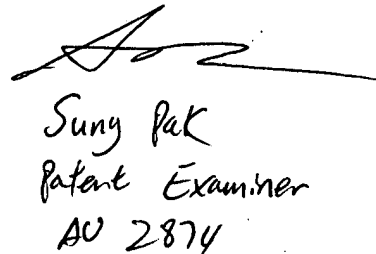 Sung Pak
Patent Examiner
AU 2874